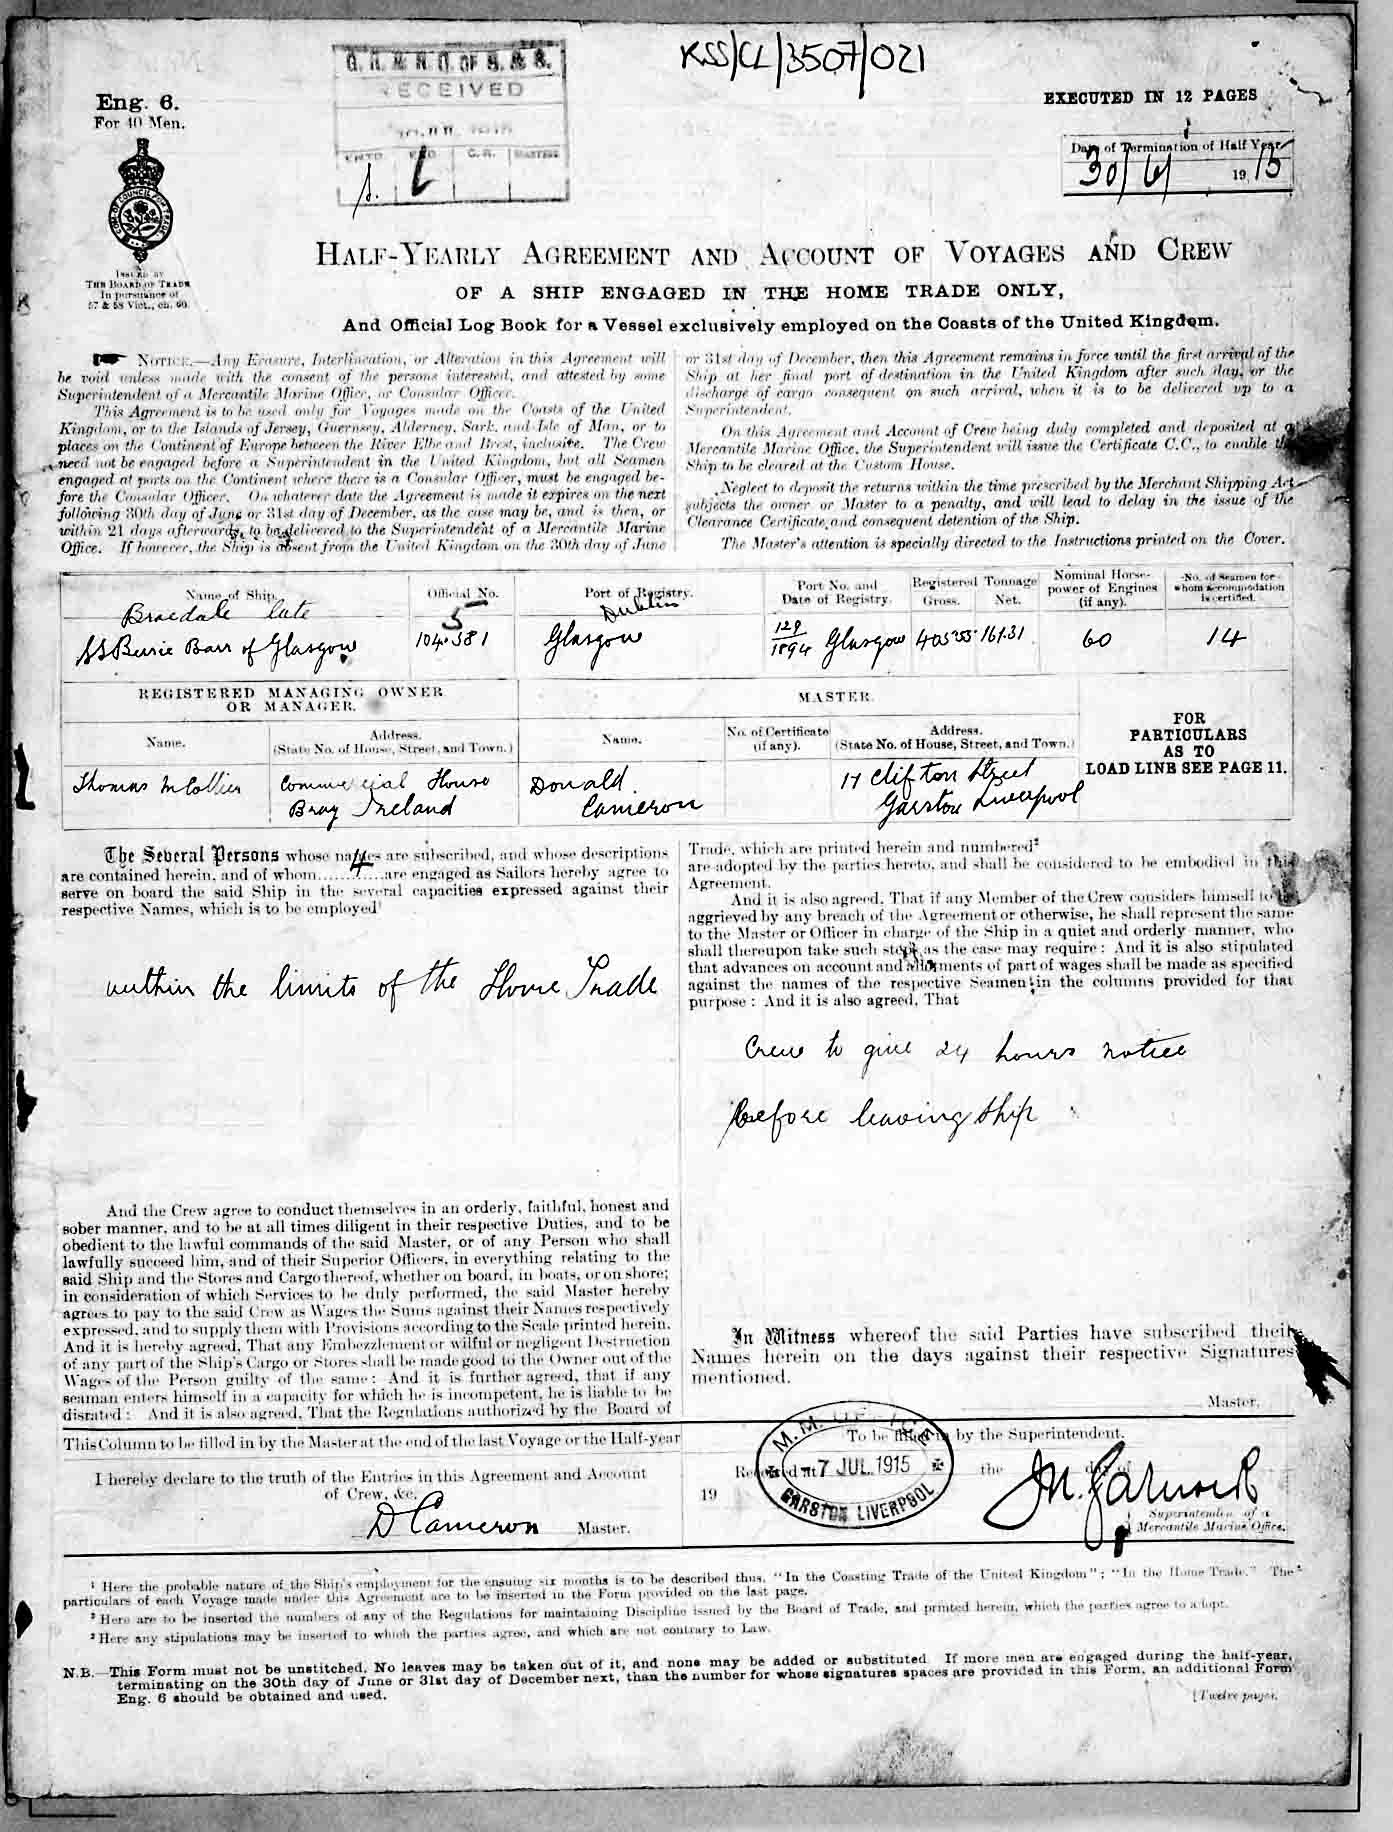 KSS/CL/3507/021
RECEIVED
Eng. 6.
For 40 Men.
EXECUTED IN 12 PAGES
Date of Termination of Half Year
30/6/ 1915
ISSUED BY
THE BOARD OF TRADE
In pursuance of
57 & 58 Vict., ch. 60.
HALF-YEARLY AGREEMENT AND ACCOUNT OF VOYAGES AND CREW
OF A SHIP ENGAGED IN THE HOME TRADE ONLY,
And Official Log Book for a Vessel exclusively employed on the Coasts of the United Kingdom.
NOTICE.—Any Erasure, Interlineation, or Alteration in this Agreement will
be void unless made with the consent of the persons interested, and attested by some
Superintendent of a Mercantile Marine Office, or Consular Officer.
This Agreement is to be used only for Voyages made on the Coasts of the United
Kingdom, or to the Islands of Jersey, Guernsey, Alderney, Sark, and Isle of Man, or to
places on the Continent of Europe between the River Elbe and Brest, inclusive. The Crew
need not be engaged before a Superintendent in the United Kingdom, but all Seamen
engaged at ports on the Continent where there is a Consular Officer, must be engaged be-
fore the Consular Officer. On whatever date the Agreement is made it expires on the next
following 30th day of June or 31st day of December, as the case may be, and is then, or
within 21 days afterwards, to be delivered to the Superintendent of a Mercantile Marine
Office. If however, the Ship is absent from the United Kingdom on the 30th day of June
or 31st day of December, then this Agreement remains in force until the first arrival of the
Ship at her final port of destination in the United Kingdom after such day, or the
discharge of cargo consequent on such arrival, when it is to be delivered up to a
Superintendent.
On this Agreement and Account of Crew being duly completed and deposited at a
Mercantile Marine Office, the Superintendent will issue the Certificate C.C., to enable the
Ship to be cleared at the Custom House.
Neglect to deposit the returns within the time prescribed by the Merchant Shipping Act
subjects the owner or Master to a penalty, and will lead to delay in the issue of the
Clearance Certificate, and consequent detention of the Ship.
The Master's attention is specially directed to the Instructions printed on the Cover.
Name of Ship. Official No. Port of Registry. Port No. and Date of Registry. Registered Tonnage Gross. Net. Nominal Horse-power of Engines (if any). No. of Seamen for whom accommodation is certified.
Braedale late 5 Dublin
SS Bessie Barr of Glasgow 104.581 Glasgow 129/1894 Glasgow 405.55 161.31 60 14
REGISTERED MANAGING OWNER OR MANAGER. MASTER.
Name. Address. (State No. of House, Street, and Town.) Name. No. of Certificate (if any). Address. (State No. of House, Street, and Town.)
FOR
PARTICULARS
AS TO
LOAD LINE SEE PAGE 11.
Thomas McCollier Commercial House Donald 17 Clifton Street
Bray Ireland Cameron Garston Liverpool
The Several Persons whose names are subscribed, and whose descriptions
are contained herein, and of whom 4 are engaged as Sailors hereby agree to
serve on board the said Ship in the several capacities expressed against their
respective Names, which is to be employed¹
within the limits of the Home Trade
And the Crew agree to conduct themselves in an orderly, faithful, honest and
sober manner, and to be at all times diligent in their respective Duties, and to be
obedient to the lawful commands of the said Master, or of any Person who shall
lawfully succeed him, and of their Superior Officers, in everything relating to the
said Ship and the Stores and Cargo thereof, whether on board, in boats, or on shore;
in consideration of which Services to be duly performed, the said Master hereby
agrees to pay to the said Crew as Wages the Sums against their Names respectively
expressed, and to supply them with Provisions according to the Scale printed herein.
And it is hereby agreed, That any Embezzlement or wilful or negligent Destruction
of any part of the Ship's Cargo or Stores shall be made good to the Owner out of the
Wages of the Person guilty of the same: And it is further agreed, that if any
seaman enters himself in a capacity for which he is incompetent, he is liable to be
disrated: And it is also agreed, That the Regulations authorized by the Board of
Trade, which are printed herein and numbered²
are adopted by the parties hereto, and shall be considered to be embodied in this
Agreement.
And it is also agreed, That if any Member of the Crew considers himself to be
aggrieved by any breach of the Agreement or otherwise, he shall represent the same
to the Master or Officer in charge of the Ship in a quiet and orderly manner, who
shall thereupon take such steps as the case may require: And it is also stipulated
that advances on account and allotments of part of wages shall be made as specified
against the names of the respective Seamen in the columns provided for that
purpose: And it is also agreed, That
Crew to give 24 hours notice
before leaving ship
In Witness whereof the said Parties have subscribed their
Names herein on the days against their respective Signatures
mentioned.
Master.
This Column to be filled in by the Master at the end of the last Voyage or the Half-year
I hereby declare to the truth of the Entries in this Agreement and Account
of Crew, &c.
D Cameron Master.
To be filled in by the Superintendent.
Received at the day of
19
M. M. OFFICE
7 JUL. 1915
GARSTON LIVERPOOL
Superintendent of a
Mercantile Marine Office.
¹ Here the probable nature of the Ship's employment for the ensuing six months is to be described thus, "In the Coasting Trade of the United Kingdom"; "In the Home Trade." The
particulars of each Voyage made under this Agreement are to be inserted in the Form provided on the last page.
² Here are to be inserted the numbers of any of the Regulations for maintaining Discipline issued by the Board of Trade, and printed herein, which the parties agree to adopt.
³ Here any stipulations may be inserted to which the parties agree, and which are not contrary to Law.
N.B.—This Form must not be unstitched. No leaves may be taken out of it, and none may be added or substituted. If more men are engaged during the half-year,
terminating on the 30th day of June or 31st day of December next, than the number for whose signatures spaces are provided in this Form, an additional Form
Eng. 6 should be obtained and used.
[Twelve pages.